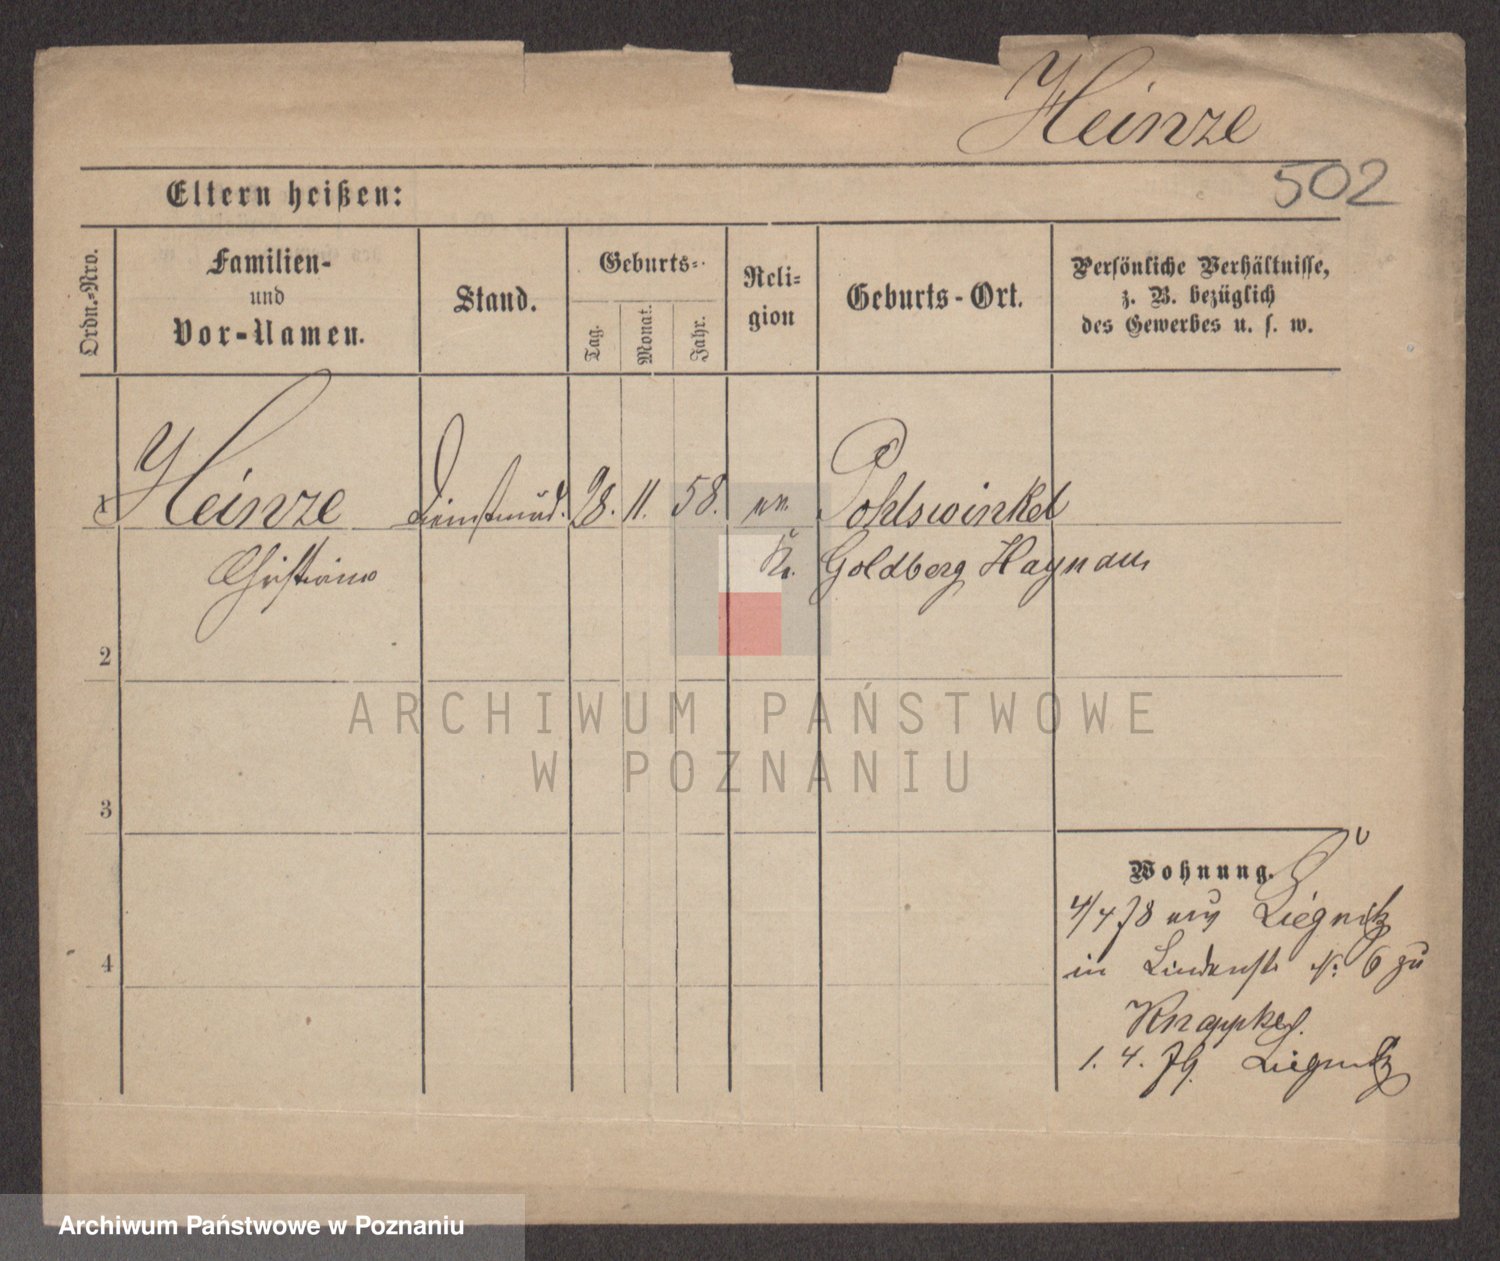 Heinze
502
Eltern heißen:
Ordn.-Nro.
Familien-
und
Vor-Namen.
Stand.
Geburts-
Tag.
Monat.
Jahr.
Reli-
gion
Geburts-Ort.
Persönliche Verhältnisse,
z. B. bezüglich
des Gewerbes u. s. w.
1 Heinze Dienstmäd. 28. 11. 58. ev. Pohlswinkel
Christiane Kr. Goldberg Haynau
2
ARCHIWUM PAŃSTWOWE
W POZNANIU
3
Wohnung.
4/4 78 aus Liegnitz
4
in Lindenstr N: 6 zu
1. 4. 79. Liegnitz
Archiwum Państwowe w Poznaniu